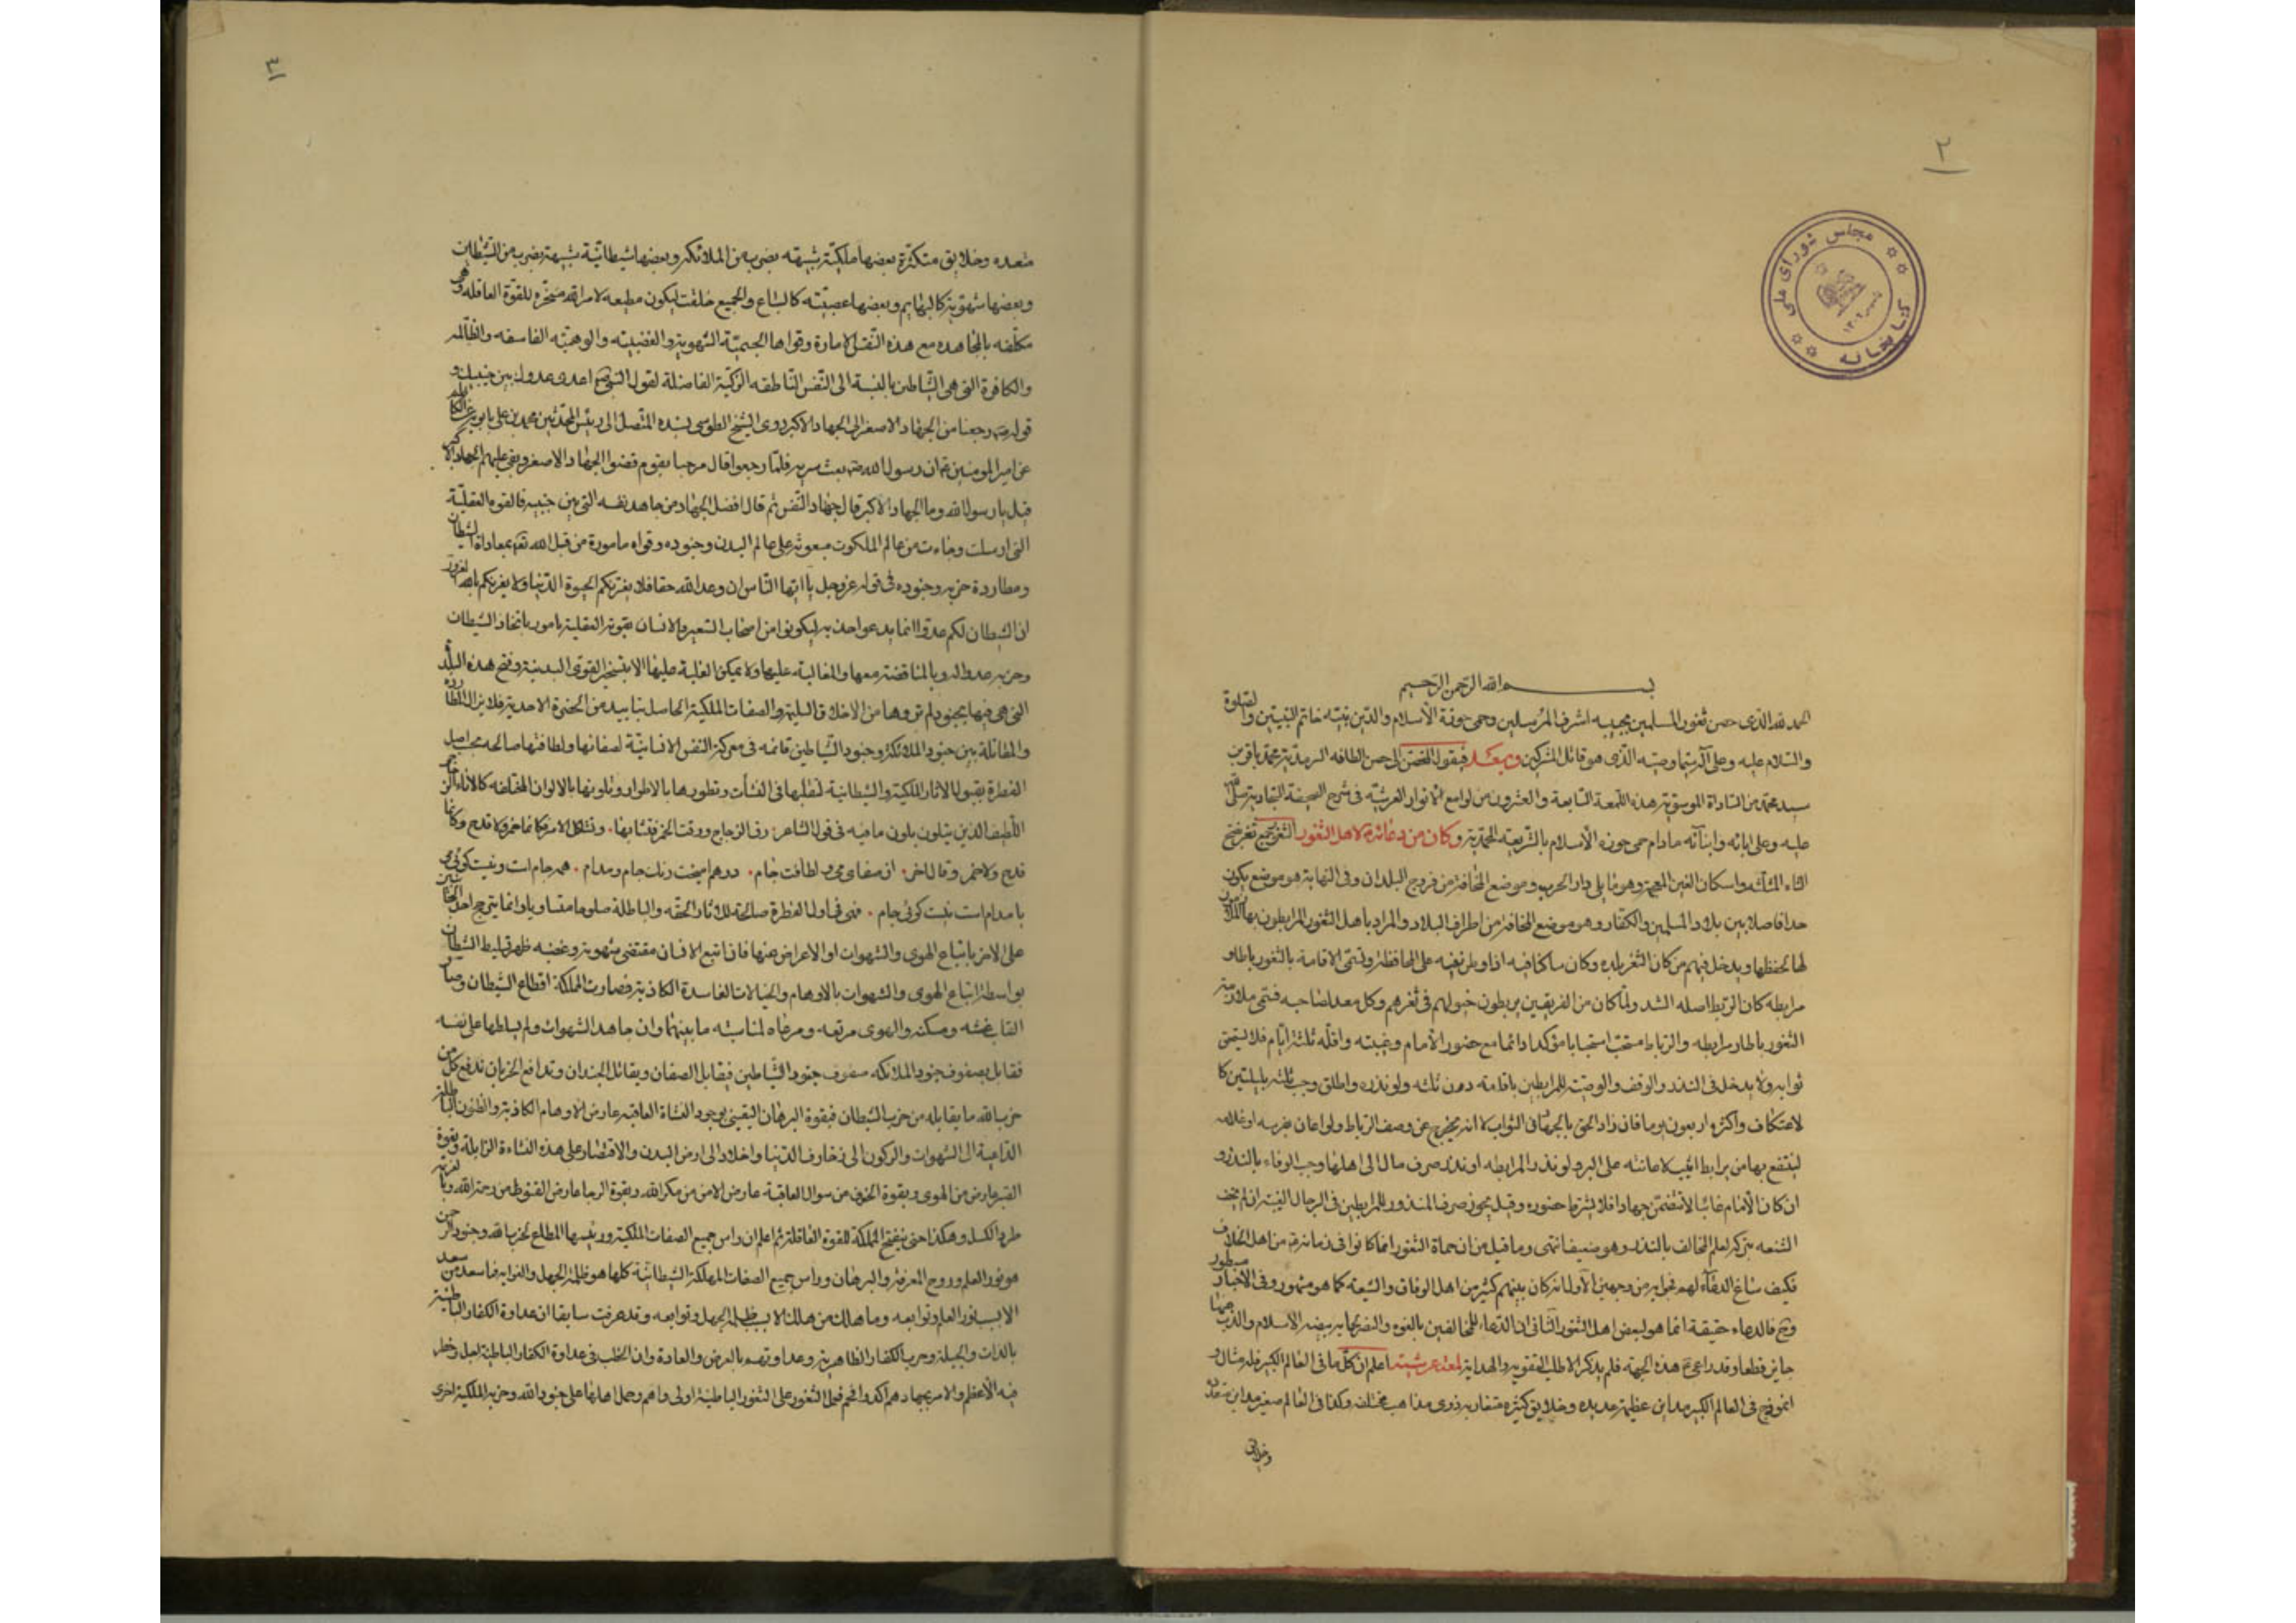 ٢
مجلس شورای ملی
کتابخانه
بسم الله الرحمن الرحیم
الحمد لله الذی حصن ثغور المسلمین بحبیبه اشرف المرسلین وحمی حوزة الاسلام والدین بنبیه خاتم النبیین والصلوة
والسلام علیه وعلی آله سیما وصیه الذی هو قاتل المشرکین وبعد فیقول الی حسن الطافه السرمدیة محمد باقر بن
سید محمد من السادات الموسویة هذه اللمعة السابعة والعشرون من لوامع الانوار العرشیة فی شرح الصحیفة السجادیة
علیه وعلی ابائه وابنائه مادام حمی حوزه الاسلام بالشریعة المحمدیة وکان من دعائه لاهل الثغور الثغر
الثاء المثلثه واسکان الغین المعجمة وهو ما یلی دار الحرب وموضع المخافة من فروج البلدان وفی النهایة هو موضع یکون
حدا فاصلا بین بلاد المسلمین والکفار وهو موضع المخافة من اطراف البلاد والمراد باهل الثغور المرابطون بها
لها لحفظها ویدخل فیهم من کان الثغر بلده وکان ساکنا فیه اذا وطن نفسه علی المحافظة وتسمی الاقامة بالثغور رباطا و
مرابطه کان الربط اصله الشد ولما کان من الفریقین یربطون خیولهم فی ثغرهم وکل معد لصاحبه فسمی ملازمة
الثغور رباطا ومرابطه والرباط مستحب استحبابا مؤکدا دائما مع حضور الامام وغیبته واقله ثلثة ایام فلا یستحق
ثوابه ولا یدخل فی النذر والوقف والوصیة للمرابطین باقامة دون ثلثه ولو نذره واطلق وجب ثلثه بلیلتین کا
لاعتکاف واکثره اربعون یوما فان زاد الحق بالجهاد فی الثواب لا انه یخرج عن وصف الرباط ولو اعان بفرسه او غلامه
لینتفع بها من یرابط اثیب لاعانته علی البر ولو نذر المرابطه او نذر صرف مال الی اهلها وجب الوفاء بالنذر و
ان کان الامام غائبا لا تتضمن جهادا فلا یشترط حضوره وقیل یجوز صرف المنذور للمرابطین فی البر حال الغیبة ان لم یخف
الشنعه بترکه لعلم المخالف بالنذر وهو ضعیف انتهی وما قیل من ان حماة الثغور انما کانوا فی زمانه من اهل الخلاف
فکیف ساغ الدعاء لهم فجوابه من وجهین الاول انه کان بینهم کثیر من اهل الوفاق والشیعة کما هو مشهور وفی الاخبار مسطور
وح فالدعاء حقیقة انما هو لبعض اهل الثغور الثانی ان الدعاء للمخالفین بالقوه والنصر بیضه الاسلام والذب عنها
جایز قطعا وقد راعی هذه الجهة فلم یذکر الا طلب التقویة والهدایة لمعة عرشیة اعلم ان کل ما فی العالم الکبیر فله مثال و
انموذج فی العالم الکبیر مداین عظیمة عدیده وخلایق کثیره متقاربه ذوی مذاهب مختلفه وکذا فی العالم صغیر مداین متعدده
وخلایق
٣
متعدده وخلایق متکثرة بعضها ملکیة شبیهة بضرب من الملائکة وبعضها شیطانیة شبیهة بضرب من الشیطان
وبعضها شهویة کالبهایم وبعضها غضبیة کالسباع والجمیع خلقت لیکون مطیعه لامر الله مسخره للقوة العاقله وهی
مکلفه بالمجاهده مع هذه النفس الامارة وقواها الجسمیة الشهویة والغضبیه والوهمیه الفاسقه والظالمه
والکافرة التی هی الشیاطین بالنسبة الی النفس الناطقه الزکیة الفاضلة لقول النبی ص اعدی عدوک بین جنبیک و
قوله ص رجعنا من الجهاد الاصغر الی الجهاد الاکبر روی الشیخ الطوسی بسنده المتصل الی رئیس المحدثین محمد بن علی بابویه عن الکاظم
عن امیر المومنین ع ان رسول الله ص بعث سریه فلما رجعوا قال مرحبا بقوم قضوا الجهاد الاصغر وبقی علیهم الجهاد الاکبر
قیل یا رسول الله وما الجهاد الاکبر قال جهاد النفس ثم قال افضل الجهاد من جاهد نفسه التی بین جنبیه فالقوه العقلیة
التی ارسلت وجاءت من عالم الملکوت مبعوثه علی عالم البدن وجنوده وقواه مامورة من قبل الله تعم بمعاداة الشیطان
ومطاردة حزبه وجنوده فی قوله عز وجل یا ایها الناس ان وعد الله حقا فلا یغرنکم الحیوة الدنیا ولا یغرنکم بالله الغرور
ان الشیطان لکم عدوا انما یدعوا حزبه لیکونوا من اصحاب السعیر والانسان بقوته العقلیة مامور باتخاذ الشیطان
وحزبه عدوا له وبالمناقضة معها والمغالبه علیها ولا یمکن الغلبة علیها الا بتسخیر القوی البدنیة وفتح هذه البلد
التی هی فیها بجنود لم تروها من الاخلاق السلیمة والصفات الملکیة الحاصل بتایید من الحضرة الاحدیة فلا یزال المطارده
والمقاتلة بین جنود الملائکة وجنود الشیاطین قائمه فی معرکة النفس الانسانیة لصفائها ولطافتها صالحه بحسب اصل
الفطرة بقبول الاثار الملکیة والشیطانیة لتقلبها فی النشأت وتطورها بالاطوار وتلونها بالالوان المختلفه کالاناء الزجاجی
اللطیف الذی یتلون بلون ما فیه فی قول الشاعر: رق الزجاج ورقت الخمر فتشابها. وتشاکل الامر فکانما خمر ولا قدح وکانما
قدح ولا خمر وقال اخر. از صفای می و لطافت جام. درهم امیخت رنک جام ومدام. همه جام است ونیست کوئی می
یا مدام است نیست کوئی جام. فهی فی اول الفطرة صالحة للاثار الحقه والباطلة صلوحا متساویا وانما یترجح احد الجانبین
علی الاخر باتباع الهوی والشهوات او الاعراض عنها فان اتبع الانسان مقتضی شهویته وغضبه ظهر تسلیط الشیطان
بواسطة اتباع الهوی والشهوات بالاوهام والخیالات الفاسدة الکاذبة فصارت المملکة اقطاع الشیطان وصار
القلب عشه ومسکنه والهوی مرتعه ومرعاه لمناسبه ما بینهما وان جاهد الشهوات ولم یسلطها علی نفسه
فقابل بصفوف جنود الملائکه صفوف جنود الشیاطین فیقابل الصفان ویقاتل الجندان وتدافع الحزبان فدفع کل من
حزب الله ما یقابله من حزب الشیطان فبقوة البرهان الیقینی بوجود النشاة العاقبه عارض الاوهام الکاذبة والظنون الباطلة
الداعیة الی الشهوات والرکون الی زخارف الدنیا واخلاد الی ارض البدن والاقتصار علی هذه النشاءة الزایلة وبقوة
الصبر عارض من الهوی وبقوة الخوف من سوال العاقبة عارض الامن من مکر الله وبقوة الرجا عارض القنوط من رحمة الله
طرد الکسل وهکذا حتی ینفتح المملکة للقوة العاقلة ثم اعلم ان راس جمیع الصفات الملکیة ورئیسها المطاع لحزب الله وجنود الرحمن
هو نور العلم وروح المعرفة والبرهان وراس جمیع الصفات المهلکة الشیطانیة کلها هو ظلمة الجهل والغوایه فما سعد من سعد
الا بسبب نور العلم وتوابعه وما هلک من هلک الا بسبب ظلمة الجهل وتوابعه وقد عرفت سابقا ان عداوة الکفار الباطنیة
بالذات والجبلة وحرب الکفار الظاهریة وعداوتهم بالعرض والعادة وان الخطب فی عداوة الکفار الباطنیة اجل وخطر
فیه الاعظم والامر بجهادهم اکد وافخم فحمل الثغور علی الثغور الباطنیة اولی واهم وحمل اهلها علی جنود الله وحزبه الملکیة احری